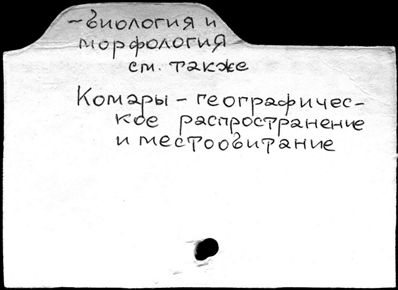 -биология и
морфология
см. также
Комары - географичес-
кое распространение
и местообитание